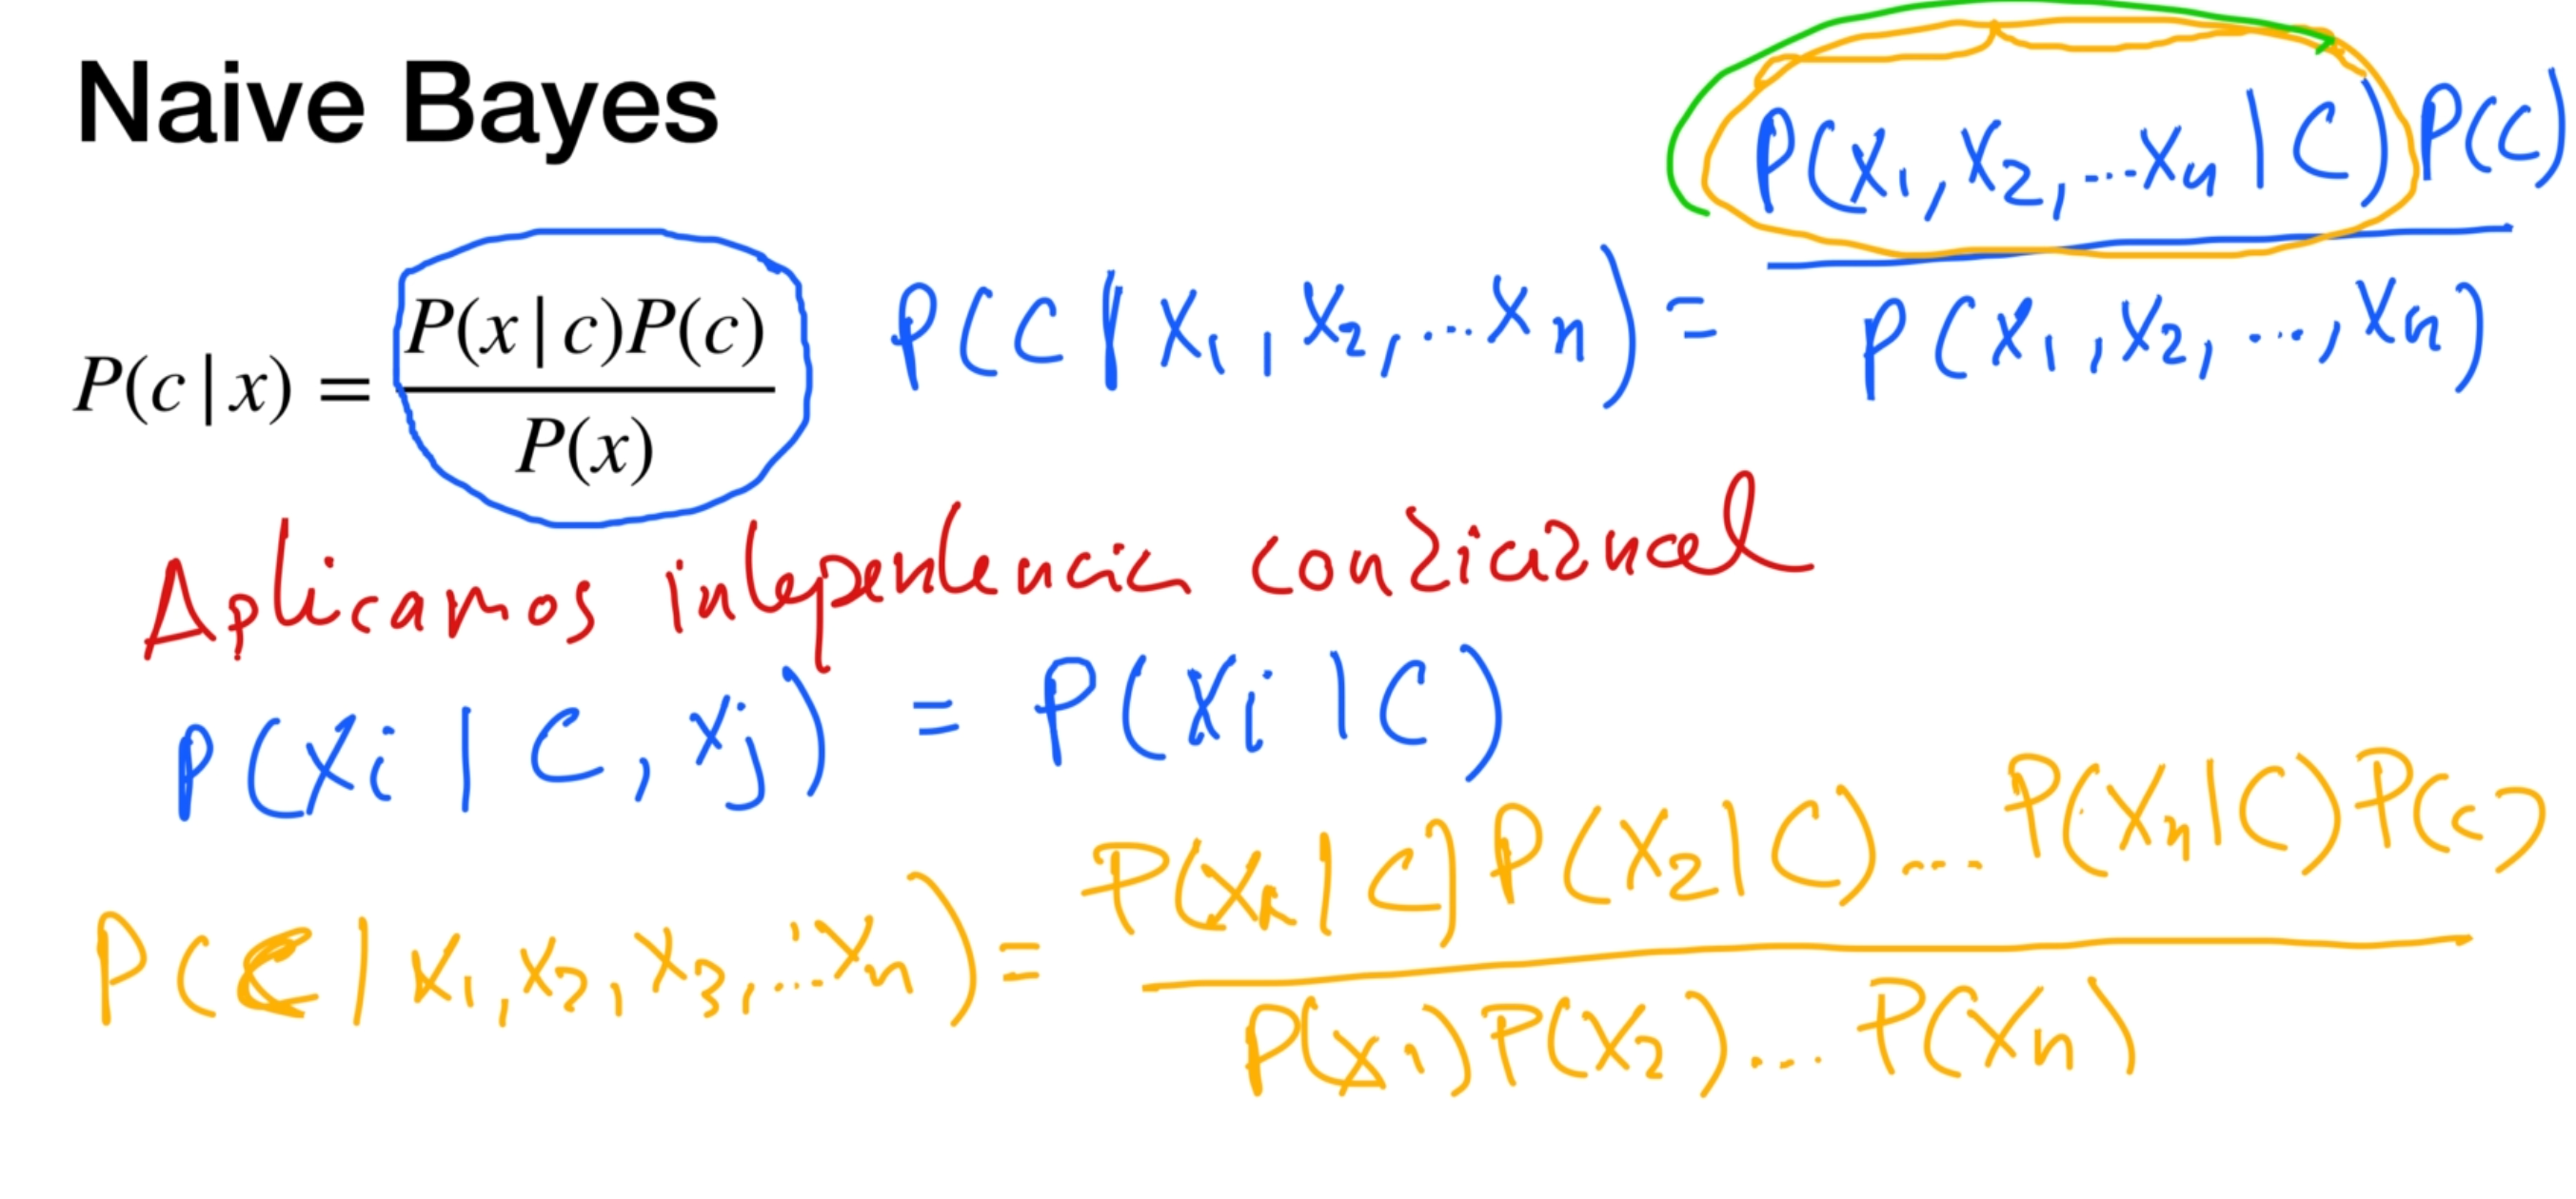 Naive Bayes
P(c|x) = P(x|c)P(c) / P(x)
P(C|X₁,X₂,...Xn) = P(X₁,X₂,...Xn|C)P(C) / P(X₁,X₂,...,Xn)
Aplicamos independencia condicional
P(Xi|C,Xj) = P(Xi|C)
P(C|X₁,X₂,X₃,...Xn) = P(X₁|C)P(X₂|C)...P(Xn|C)P(C) / P(X₁)P(X₂)...P(Xn)